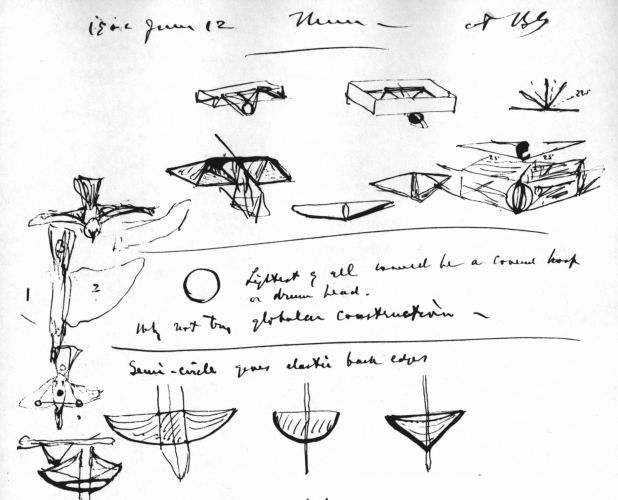 June 12
at BB
22.5°
25° 25°
Lightest of all would be a covered hoop
or drum head.
Why not try globular construction —
1 2
Semi-circle gives elastic back edges